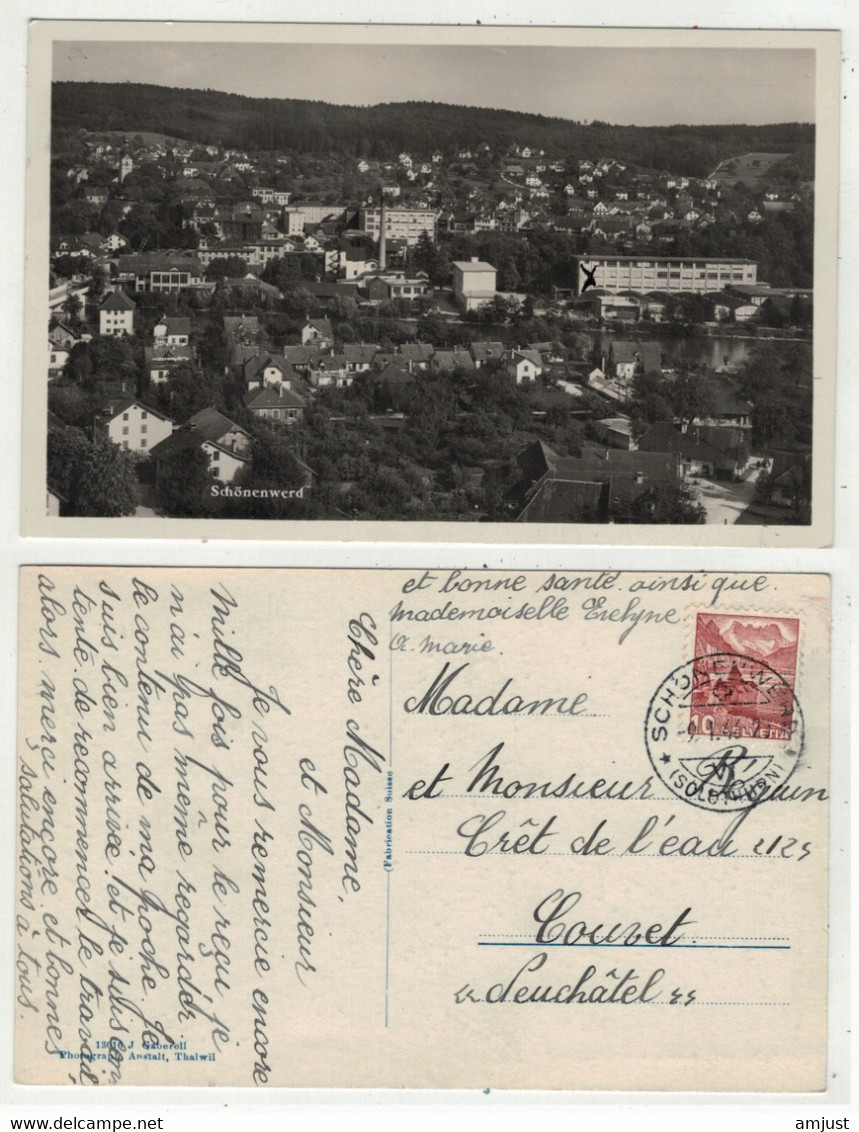 Schönenwerd
et bonne santé. ainsi que.
mademoiselle Evelyne
A. marie.
Chère Madame,
et Monsieur
Je vous remercie encore
Mille fois pour le reçu je
n'ai pas même regardér
le contenu de ma poche. Je
suis bien arrivée. et je suis con
tente. de recommencer le travail
alors. merci encore. et bonnes
salutations à tous.
(Fabrication Suisse)
J Gaberell
Photograph. Anstalt, Thalwil
Madame
et Monsieur Béguin
Crêt de l'eau
Couvet
Neuchâtel
SCHÖNENWERD
(SOLOTHURN)
10
HELVETIA
amjust